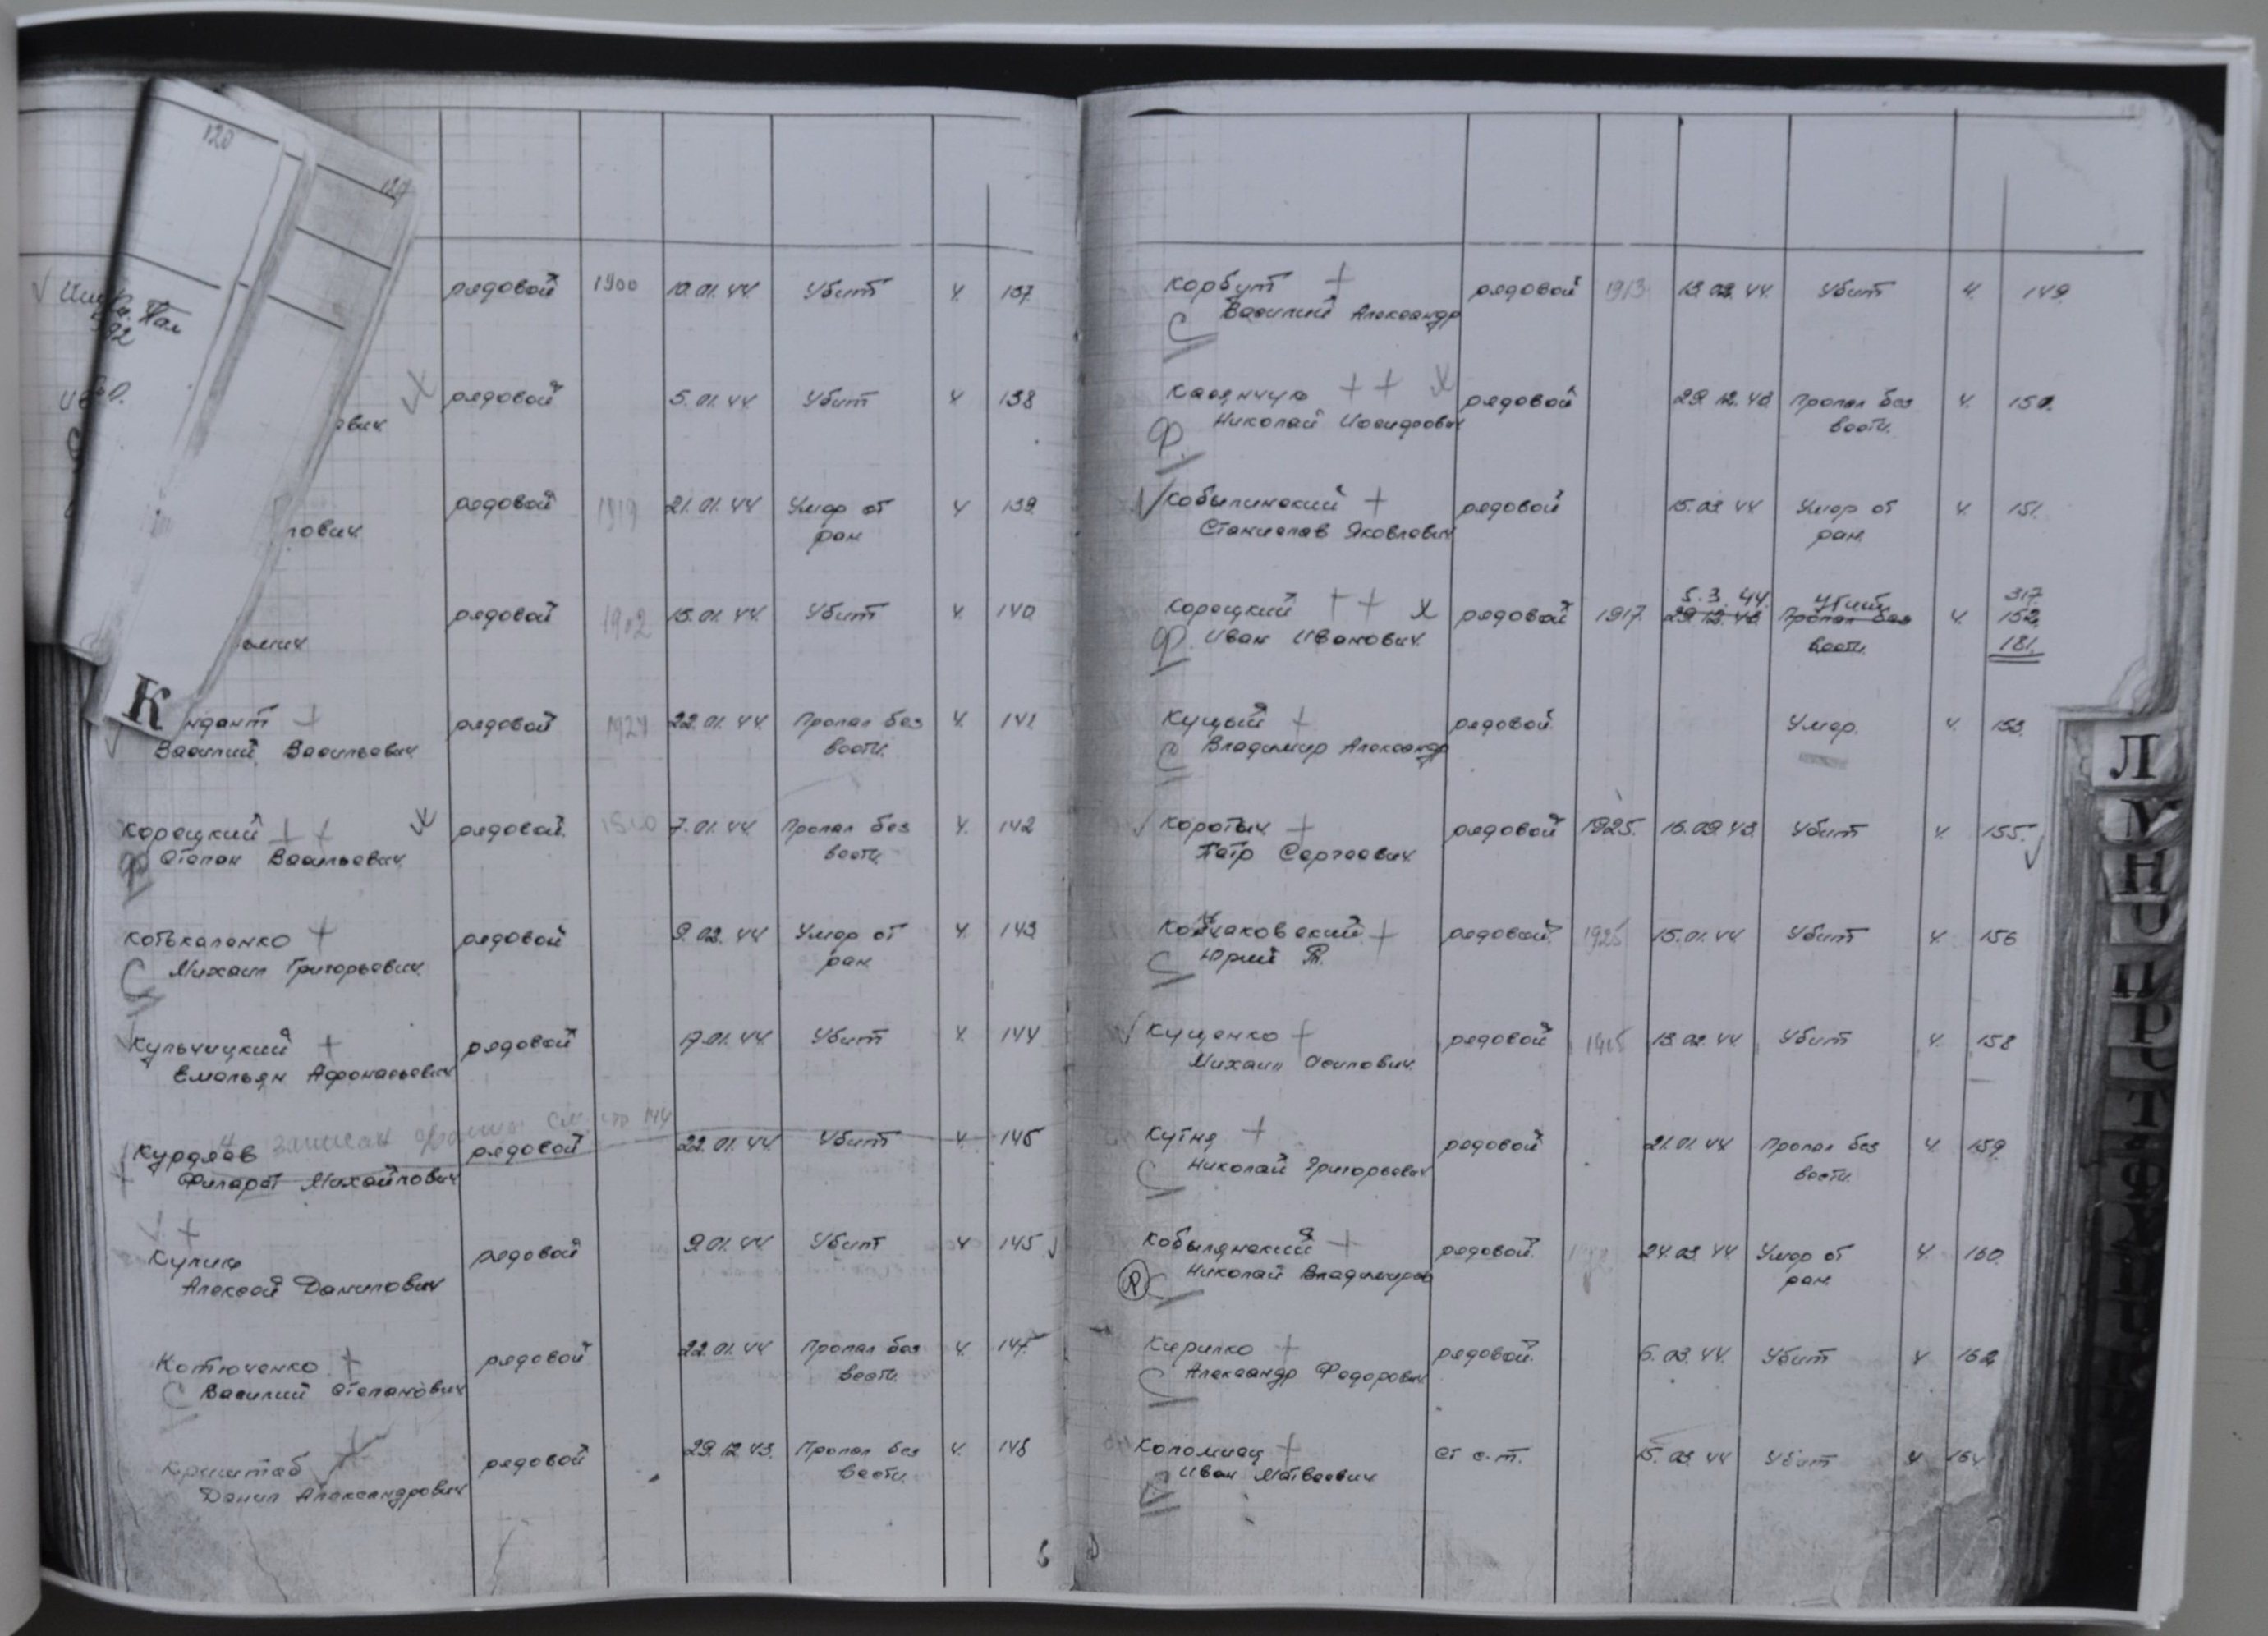 120
рядовой 1900 10.01.44. Убит 4. 137.
рядовой 5.01.44 Убит 4 138
ович
рядовой 1919 21.01.44 Умер от ран 4 139
лович
рядовой 1902 15.01.44. Убит 4. 140
ьмич
К
ндант + рядовой 22.01.44. Пропал без вести. 4. 141.
Василий Васильевич
Корецкий + + рядовой. 7.01.44. Пропал без вести. 4. 142
Ф Степан Васильевич
Котькаленко + рядовой 9.02.44 Умер от ран 4. 143
С Михаил Григорьевич
Кульчицкий + рядовой 17.01.44. Убит 4. 144
Емельян Афонасьевич
записан см. стр 144
Курдяев рядовой 22.01.44. Убит 4. 145
Филарет Михайлович
+
Кулик рядовой 9.01.44 Убит 4 145
Алексей Данилович
Котюченко + рядовой 22.01.44 Пропал без вести. 4. 147
С Василий Степанович
Криштаб рядовой 29.12.43. Пропал без вести. 4. 148
Данил Александрович
Корбут + рядовой 1913 13.03.44. Убит 4. 149.
С Василий Александр
Касянчук + + х рядовой 29.12.43 Пропал без вести. 4. 150.
Ф. Николай Исидрович
Кобылинский + рядовой 15.03.44 Умер от ран. 4. 151.
Станислав Яковлевич
5.3.44. Убит 317
Корецкий + + х рядовой 1917. 29.12.43 Пропал без вести. 4. 152.
Ф. Иван Иванович. 181.
Куцый + рядовой. Умер. 4. 153.
С Владимир Александр
Коротыч + рядовой 1925. 16.09.43. Убит 4. 155.
Петр Сергеевич.
+ рядовой 1925 15.01.44 Убит 4. 156
С Юрий
Кущенко + рядовой 13.02.44 Убит 4. 158
Михаил Осипович.
Кутня + рядовой 21.01.44 Пропал без вести. 4. 159.
С Николай Григорьевич
Кобылянский + рядовой. 24.03.44 Умер от ран. 4. 160.
Ф С Николай Владимиров
Кирилко + рядовой. 6.03.44. Убит 4 162
С Александр Федорович
Коломиец + ст с-т. 15.03.44 Убит 4 164
Иван Матвеевич
Л
У
Н
О
П
Р
С
Т